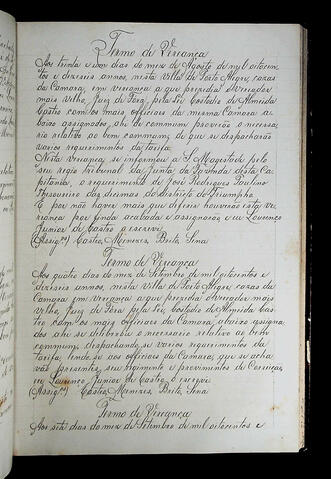 Termo de Veriança
Aos trinta e um dias do mez de Agosto de mil oitocen-
tos e dezeseis annos, nesta Villa de Porto Alegre, cazas
da Camara, em vereança a que prezediu o Vereador
mais velho, Juiz de Fora, pela Lei Custodio de Almeida
Castro com os mais officiaes da mesma Camara a-
baixo assignados, ahi de commum proveirão o necessa-
rio relativo ao bem commum, de que se despacharão
varios requerimentos da tarifa.
Nesta vereança se informou a S. Magestade pelo
seu regio Tribunal da Junta da Fazenda desta Ca-
pitania, o requerimento de José Rodrigues Paulino
Thesoureiro das decimas do districto do Triumpho.
E por não haver mais que diferir houverão esta ve-
riança por finda acabada e assignarão eu Lourenço
Junior de Castro o escrevi
(Assig.os) Castro, Menezes, Brito, Sena
Termo de Veriança
Aos quatro dias do mez de Setembro de mil oitocentos e
dezeseis annos, nesta Villa de Porto Alegre, cazas da
Camara em vereança a que prezediu o Vereador mais
velho, Juiz de Fora pela Lei, Custodio de Almeida Cas-
tro com os mais officiaes da Camara, abaixo assigna-
dos ahi se deliberou o necessario relativo ao bem
commum, despachando-se varios requerimentos da
tarifa, tendo-se aos officiaes da Camara, que se acha-
vão prezentes, seu regimento e provimentos da Correição,
eu Lourenço Junior de Castro, o escrevi
(Assig.os) Castro, Menezes, Brito, Sena
Termo de Veriança
Aos sete dias do mez de Setembro de mil oitocentos e